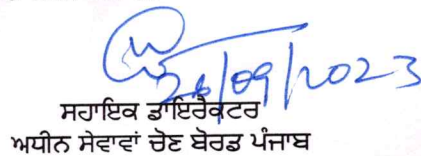 26/09/2023
ਸਹਾਇਕ ਡਾਇਰੈਕਟਰ
ਅਧੀਨ ਸੇਵਾਵਾਂ ਚੋਣ ਬੋਰਡ ਪੰਜਾਬ